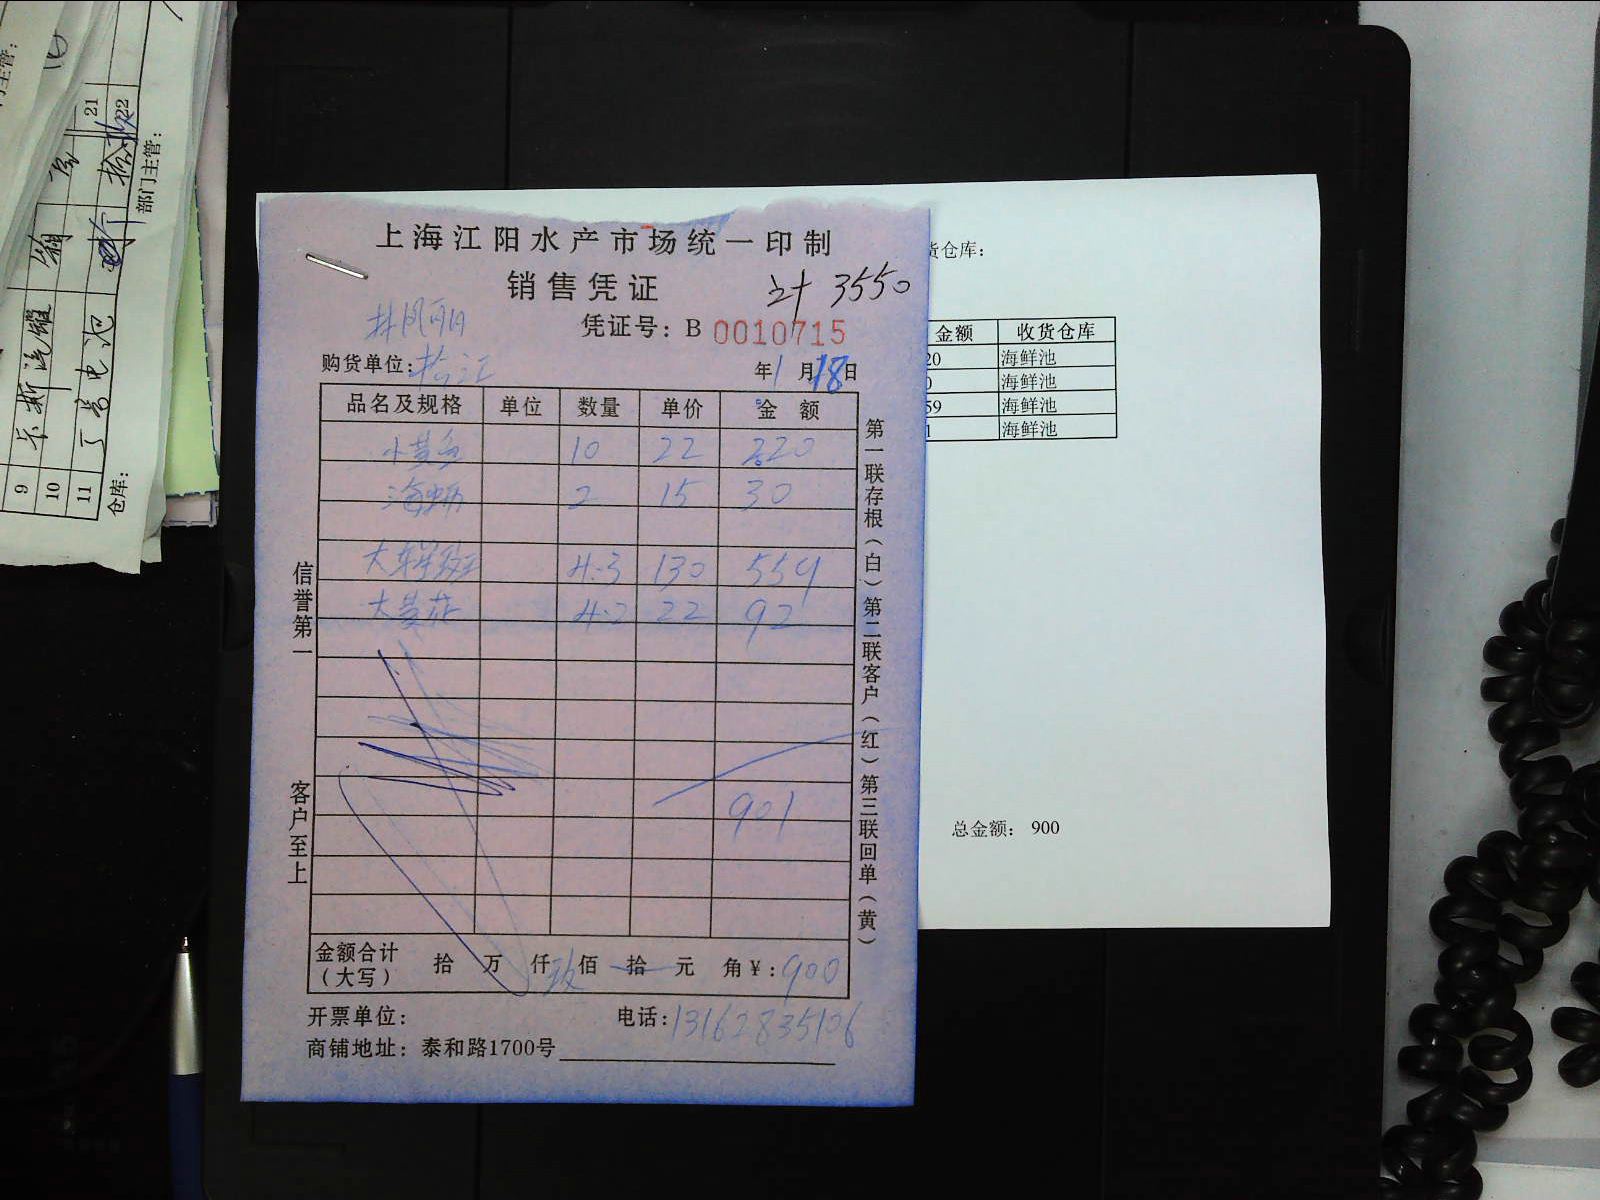 上海江阳水产市场统一印制
销售凭证
计 3550
凭证号：B 0010715
购货单位：
年1月18日
品名及规格 单位 数量 单价 金额
小黄鱼 10 22 220
海蛎 2 15 30
大东星斑 4.3 130 559
大黄 4.2 22 92
901
金额合计（大写） 拾 万 仟 玖佰 拾 元 角￥：900
开票单位：
电话：13162835106
商铺地址：泰和路1700号
信誉第一
客户至上
第一联存根（白）第二联客户（红）第三联回单（黄）
货仓库：
金额 收货仓库
20 海鲜池
0 海鲜池
59 海鲜池
1 海鲜池
总金额： 900
21
22
部门主管：
9
10
11 电池
仓库：